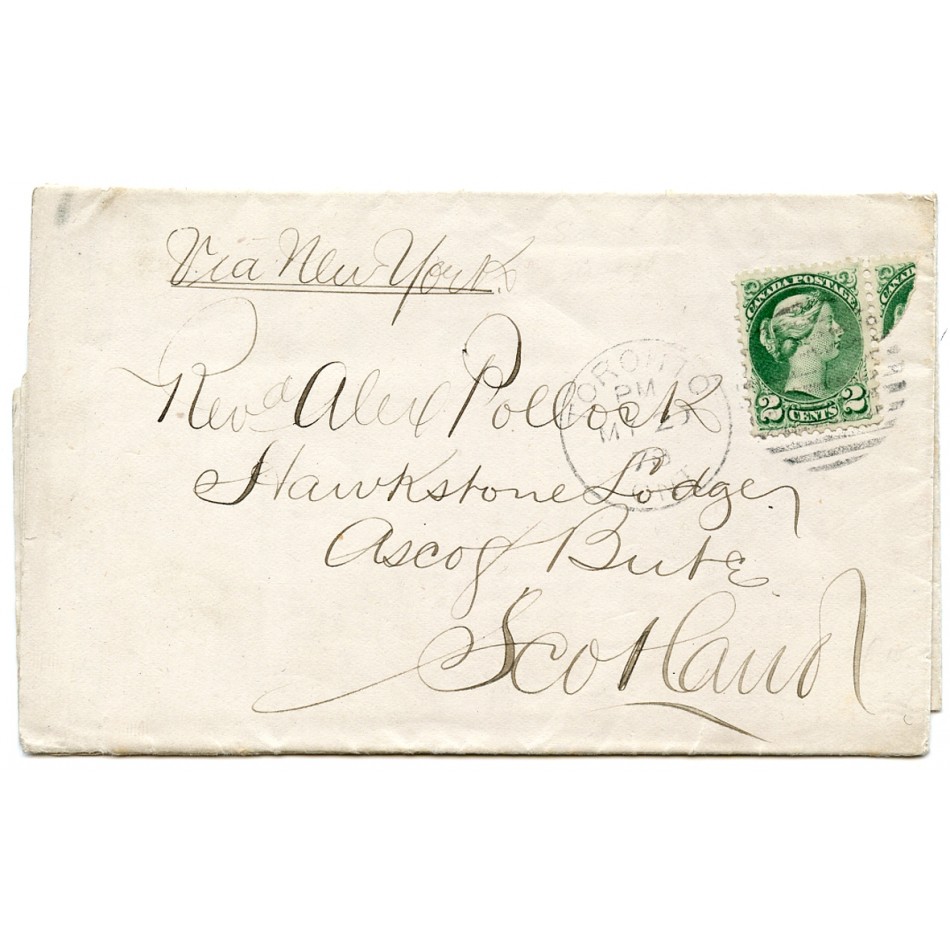 Via New York
CANADA POSTAGE
CANADA
2 CENTS 2
TORONTO
PM
ONT
Revd Alex Pollock
Hawkstone Lodge
Ascog Bute
Scotland